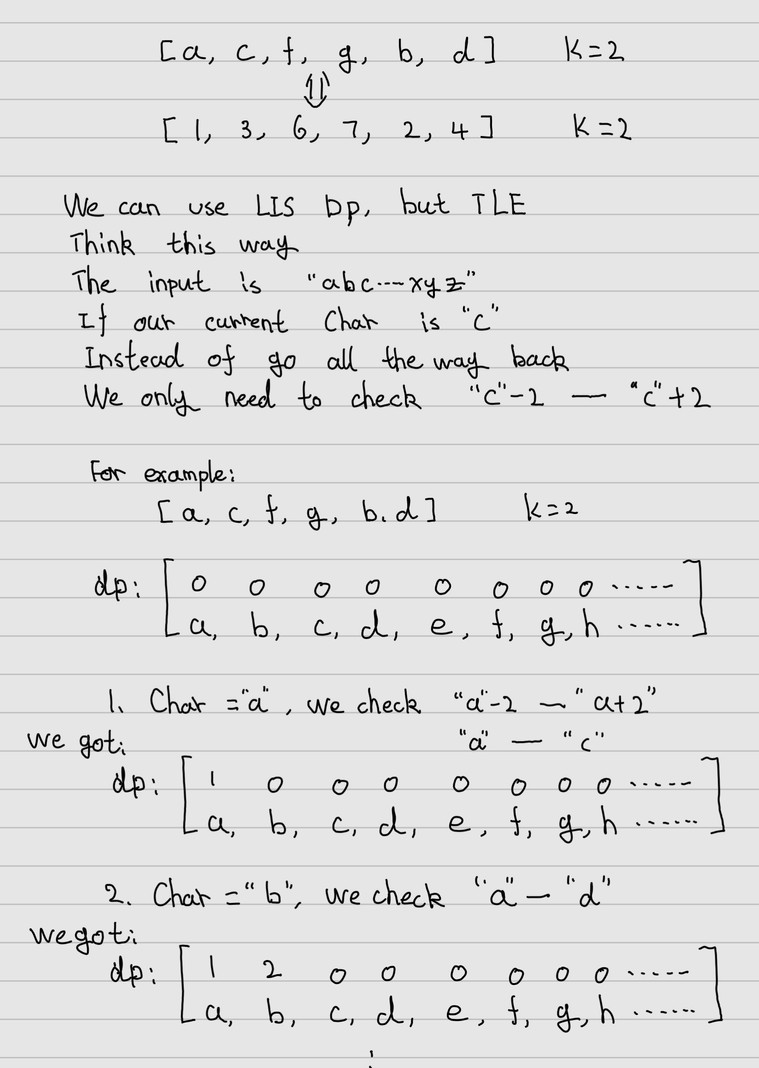 [a, c, f, g, b, d] K=2
⇓
[1, 3, 6, 7, 2, 4] K=2
We can use LIS Dp, but TLE
Think this way
The input is "abc----xyz"
If our current Char is "c"
Instead of go all the way back
We only need to check "c"-2 — "c"+2
For example:
[a, c, f, g, b. d] k=2
dp: [ 0 0 0 0 0 0 0 0 ......
a, b, c, d, e, f, g, h ...... ]
1. Char ="a", we check "a"-2 — "a+2"
we got: "a" — "c"
dp: [ 1 0 0 0 0 0 0 0 ......
a, b, c, d, e, f, g, h ...... ]
2. Char ="b", we check "a" — "d"
we got:
dp: [ 1 2 0 0 0 0 0 0 ......
a, b, c, d, e, f, g, h ...... ]